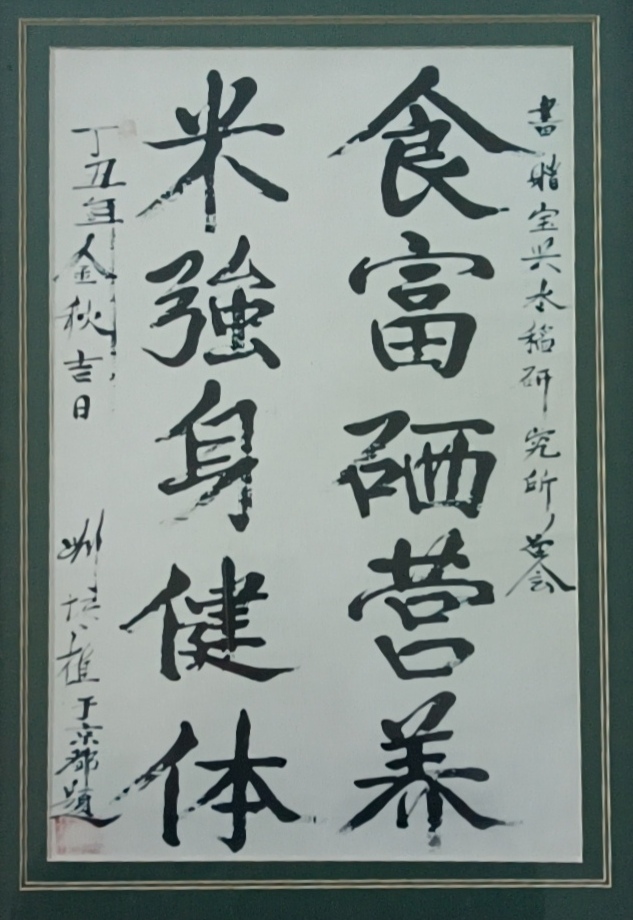 書贈宝兴水稻研究所
食富硒营养
米強身健体
丁丑年金秋吉日 于京都題